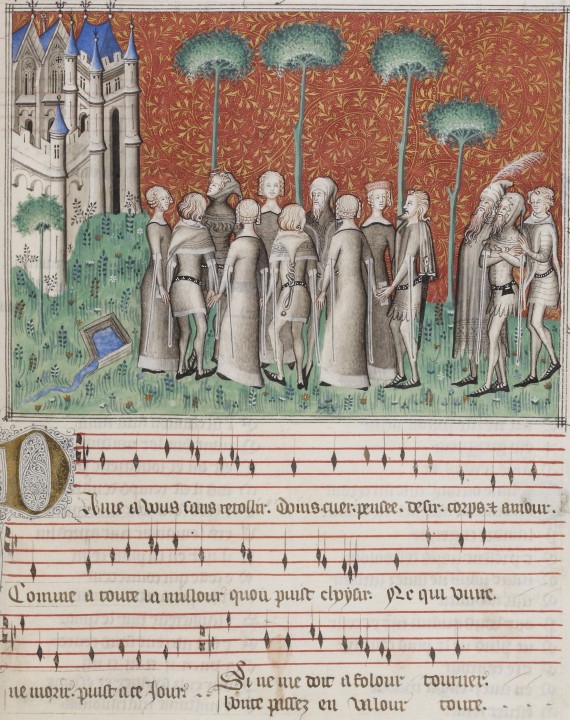 Dame a vous sans retollir. Doins cuer. pensee. desir. corps ⁊ amour.
Comme a toute la millour quon puist choysir. Ne qui viure.
ne morir. puist a ce Jour.
Si ne me doit a folour tourner.
bonte passez en valour toute.